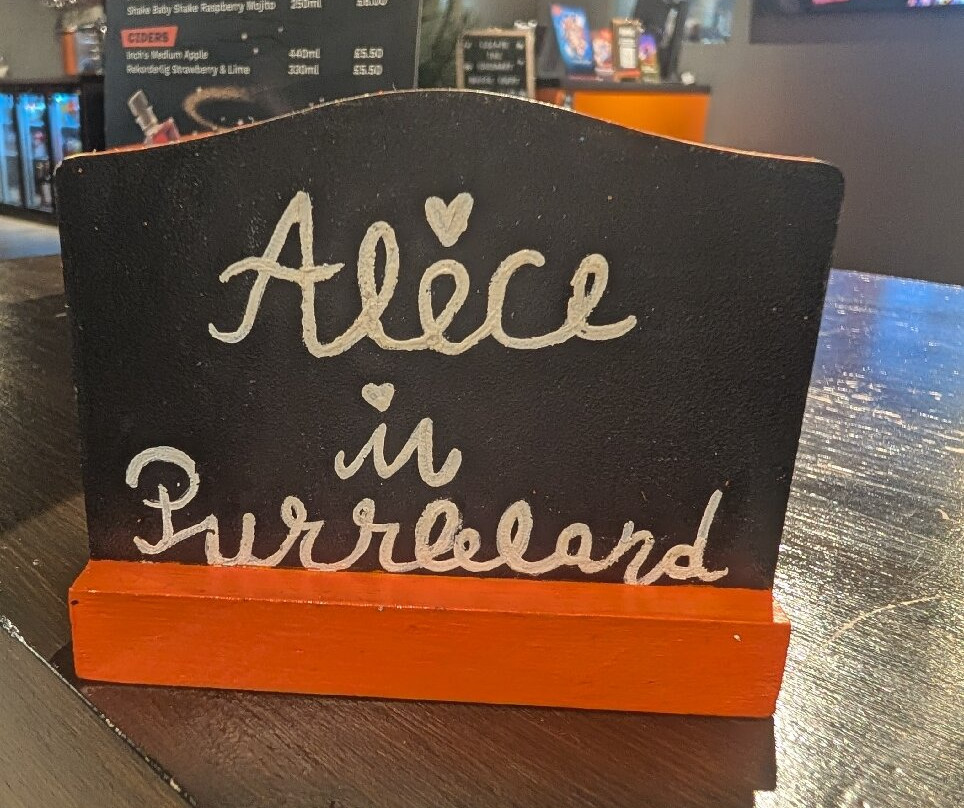 Shake Baby Shake Raspberry Mojito 250ml
CIDERS
Inch's Medium Apple 440ml £5.50
Rekorderlig Strawberry & Lime 330ml £5.50
Alice
in
Purrleland